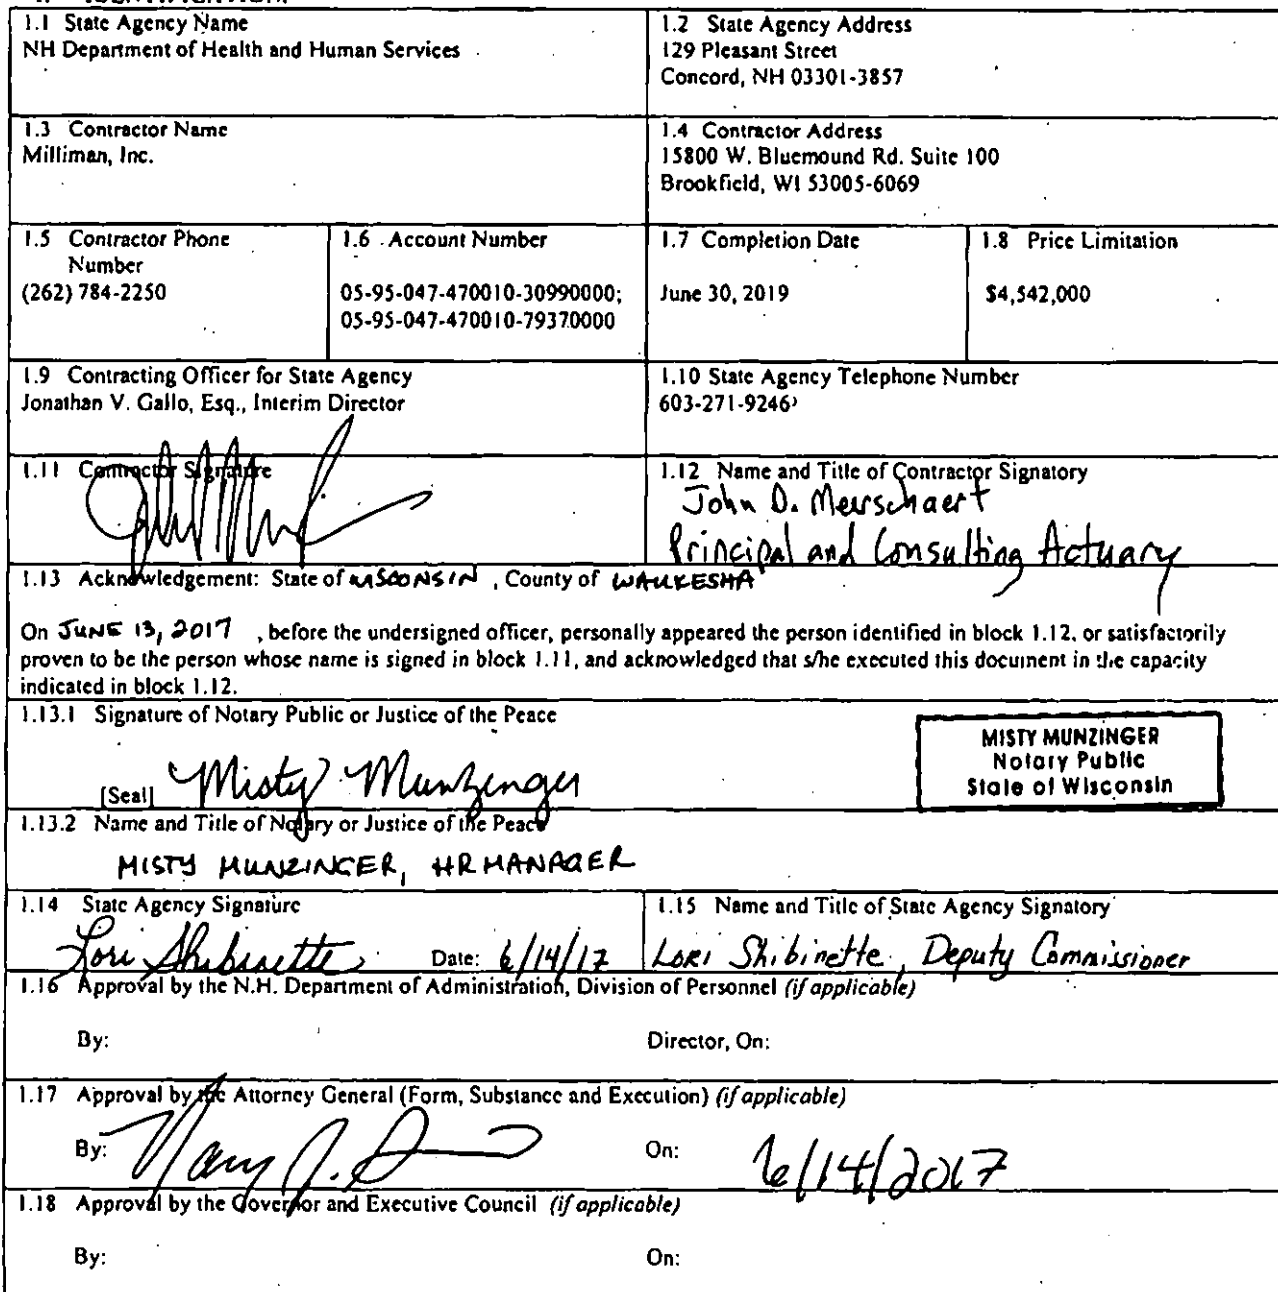 1.1 State Agency Name
NH Department of Health and Human Services
1.2 State Agency Address
129 Pleasant Street
Concord, NH 03301-3857
1.3 Contractor Name
Milliman, Inc.
1.4 Contractor Address
15800 W. Bluemound Rd. Suite 100
Brookfield, WI 53005-6069
1.5 Contractor Phone
Number
(262) 784-2250
1.6 Account Number
05-95-047-470010-30990000;
05-95-047-470010-79370000
1.7 Completion Date
June 30, 2019
1.8 Price Limitation
$4,542,000
1.9 Contracting Officer for State Agency
Jonathan V. Gallo, Esq., Interim Director
1.10 State Agency Telephone Number
603-271-9246
1.11 Contractor Signature
1.12 Name and Title of Contractor Signatory
John D. Meerschaert
Principal and Consulting Actuary
1.13 Acknowledgement: State of WISCONSIN , County of WAUKESHA
On JUNE 13, 2017 , before the undersigned officer, personally appeared the person identified in block 1.12, or satisfactorily
proven to be the person whose name is signed in block 1.11, and acknowledged that s/he executed this document in the capacity
indicated in block 1.12.
1.13.1 Signature of Notary Public or Justice of the Peace
[Seal] Misty Munzinger
MISTY MUNZINGER
Notary Public
State of Wisconsin
1.13.2 Name and Title of Notary or Justice of the Peace
MISTY MUNZINGER, HR MANAGER
1.14 State Agency Signature
Lori Shibinette Date: 6/14/17
1.15 Name and Title of State Agency Signatory
Lori Shibinette, Deputy Commissioner
1.16 Approval by the N.H. Department of Administration, Division of Personnel (if applicable)
By: Director, On:
1.17 Approval by the Attorney General (Form, Substance and Execution) (if applicable)
By: On: 6/14/2017
1.18 Approval by the Governor and Executive Council (if applicable)
By: On: